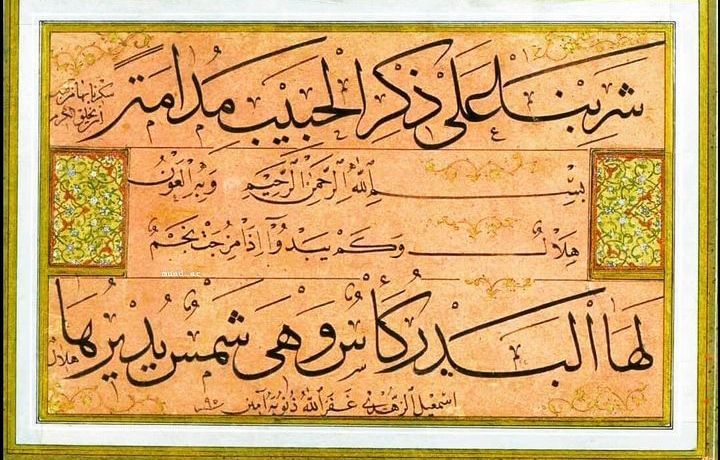 شربنا على ذكر الحبيب مدامة
سكرنا بها من قبل
أن يخلق الكرم
بسم الله الرحمن الرحيم وبه العون
هلال وكم يبدو إذا مزجت نجم
لها البدر كأس وهي شمس يديرها
هلال
اسمعيل الزهدي غفر الله ذنوبه آمين